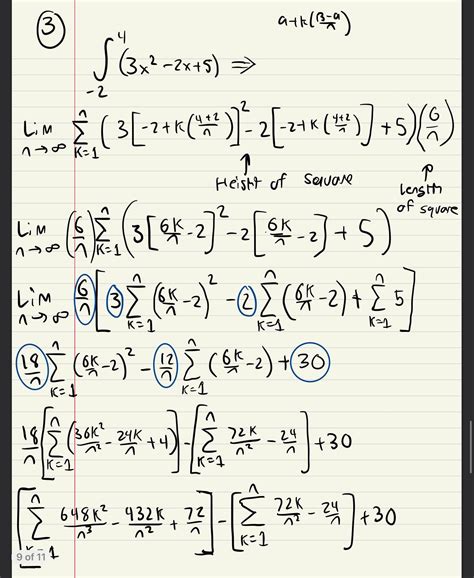 ③ a+k(B-a/n)
∫_{-2}^{4} (3x² -2x+5) ⇒
Lim n→∞ Σ_{K=1}^{n} (3[-2+K(4+2/n)]² -2[-2+K(4+2/n)] +5)(6/n)
↑ Height of square ↑ Length of square
Lim n→∞ (6/n) Σ_{K=1}^{n} (3[6K/n -2]² -2[6K/n -2] +5)
Lim n→∞ 6/n [3 Σ_{K=1}^{n} (6K/n -2)² - 2 Σ_{K=1}^{n} (6K/n -2) + Σ_{K=1}^{n} 5]
18/n Σ_{K=1}^{n} (6K/n -2)² - 12/n Σ_{K=1}^{n} (6K/n -2) + 30
18/n [Σ_{K=1}^{n} (36K²/n² - 24K/n +4)] - [Σ_{K=1}^{n} 72K/n² - 24/n] +30
[Σ_{K=1}^{n} 648K²/n³ - 432K/n² + 72/n] - [Σ_{K=1}^{n} 72K/n² - 24/n] +30
9 of 11